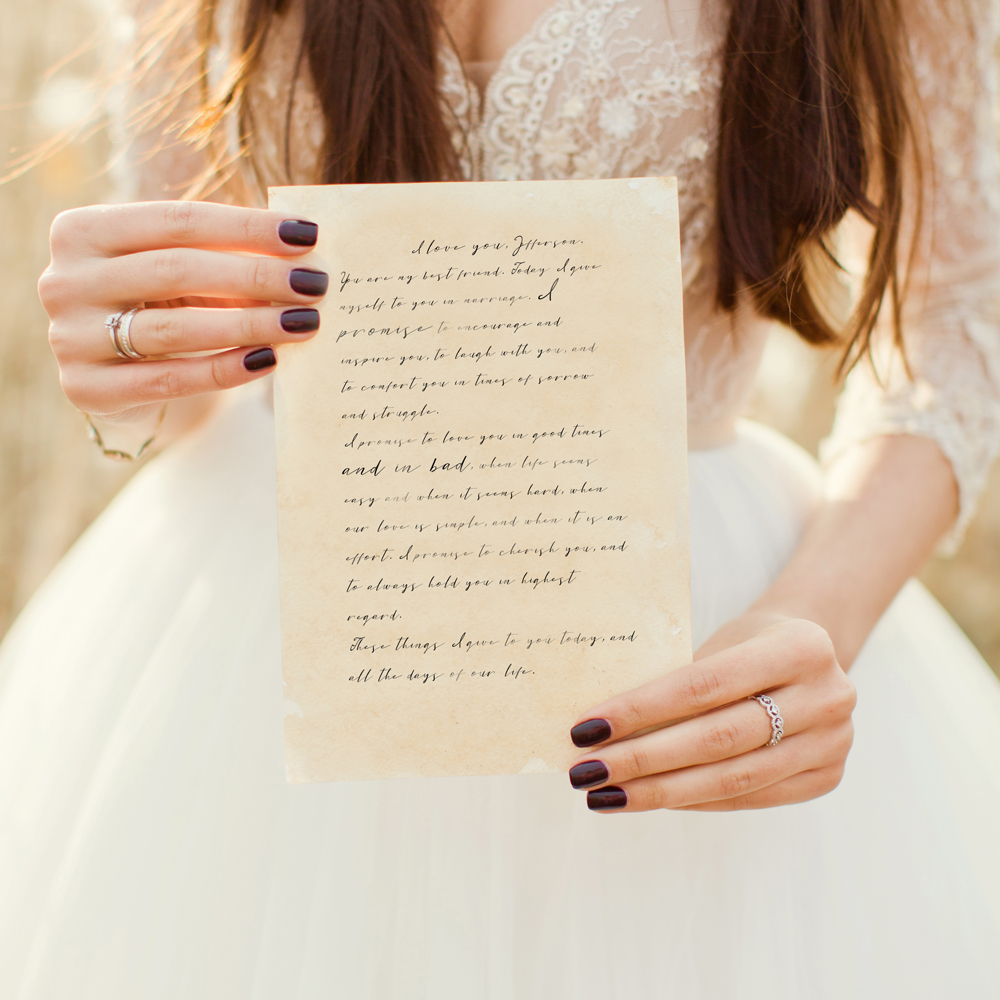 I love you, Jfferson.
You are my best friend. Today I give
myself to you in marriage. I
promise to encourage and
inspire you, to laugh with you, and
to comfort you in times of sorrow
and struggle.
I promise to love you in good times
and in bad, when life seems
easy and when it seems hard, when
our love is simple, and when it is an
effort. I promise to cherish you, and
to always hold you in highest
regard.
These things I give to you today, and
all the days of our life.